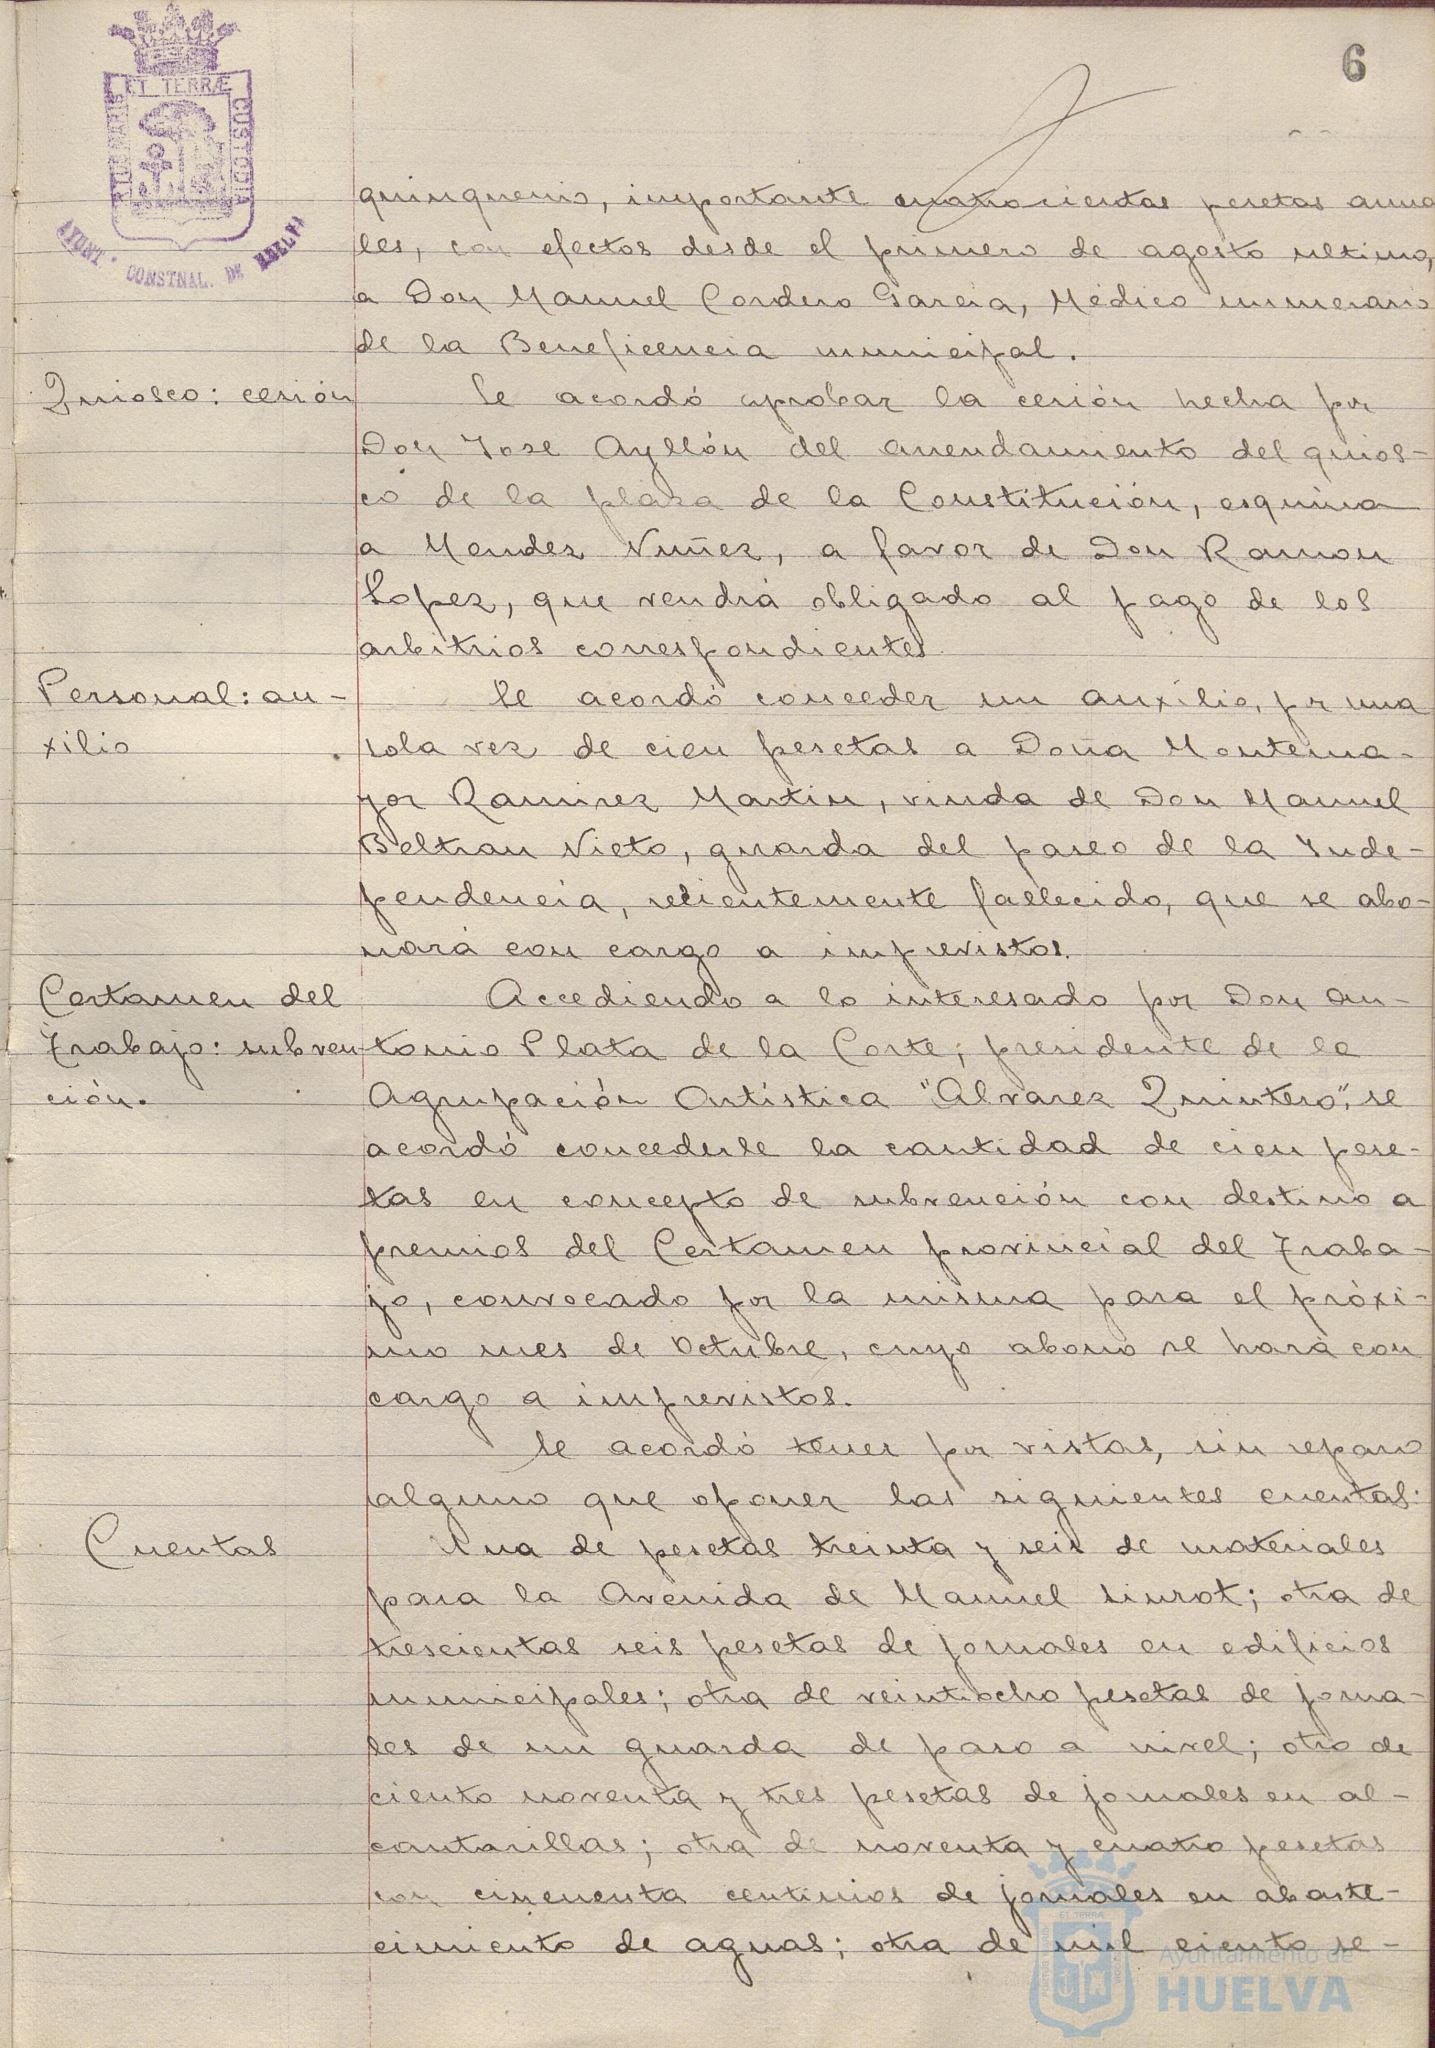 6
PORTUS MARIS
ET TERRÆ
CUSTODIA
AYUNT. CONSTNAL. DE HUELVA
quinquenio, importante cuatrocientas pesetas anua
les, con efectos desde el primero de agosto ultimo,
a Don Manuel Cordero Garcia, Médico numerario
de la Beneficencia municipal.
Quiosco: cesión
Se acordó aprobar la cesión hecha por
Don Jose Ayllón del arrendamiento del quios-
co de la plaza de la Constitución, esquina
a Mendez Nuñez, a favor de Don Ramon
Lopez, que vendrá obligado al pago de los
arbitrios correspondientes
Personal: au-
xilio
Se acordó conceder un auxilio, por una
sola vez de cien pesetas a Doña Montema-
yor Ramirez Martin, viuda de Don Manuel
Beltran Nieto, guarda del paseo de la Inde-
pendencia, recientemente fallecido, que se abo-
nará con cargo a imprevistos.
Certamen del
Trabajo: subven
ción.
Accediendo a lo interesado por Don An-
tonio Plata de la Corte, presidente de la
Agrupación Artística "Alvarez Quintero", se
acordó concederle la cantidad de cien pese-
tas en concepto de subvención con destino a
premios del Certamen provincial del Traba-
jo, convocado por la misma para el próxi-
mo mes de Octubre, cuyo abono se hará con
cargo a imprevistos.
Se acordó tener por vistas, sin reparo
alguno que oponer las siguientes cuentas:
Cuentas
Una de pesetas treinta y seis de materiales
para la Avenida de Manuel Siurot; otra de
trescientas seis pesetas de jornales en edificios
municipales; otra de veintiocho pesetas de jorna-
les de un guarda de paso a nivel; otra de
ciento noventa y tres pesetas de jornales en al-
cantarillas; otra de noventa y cuatro pesetas
con cincuenta centimos de jornales en abaste-
cimiento de aguas; otra de mil ciento se-
Ayuntamiento de
HUELVA